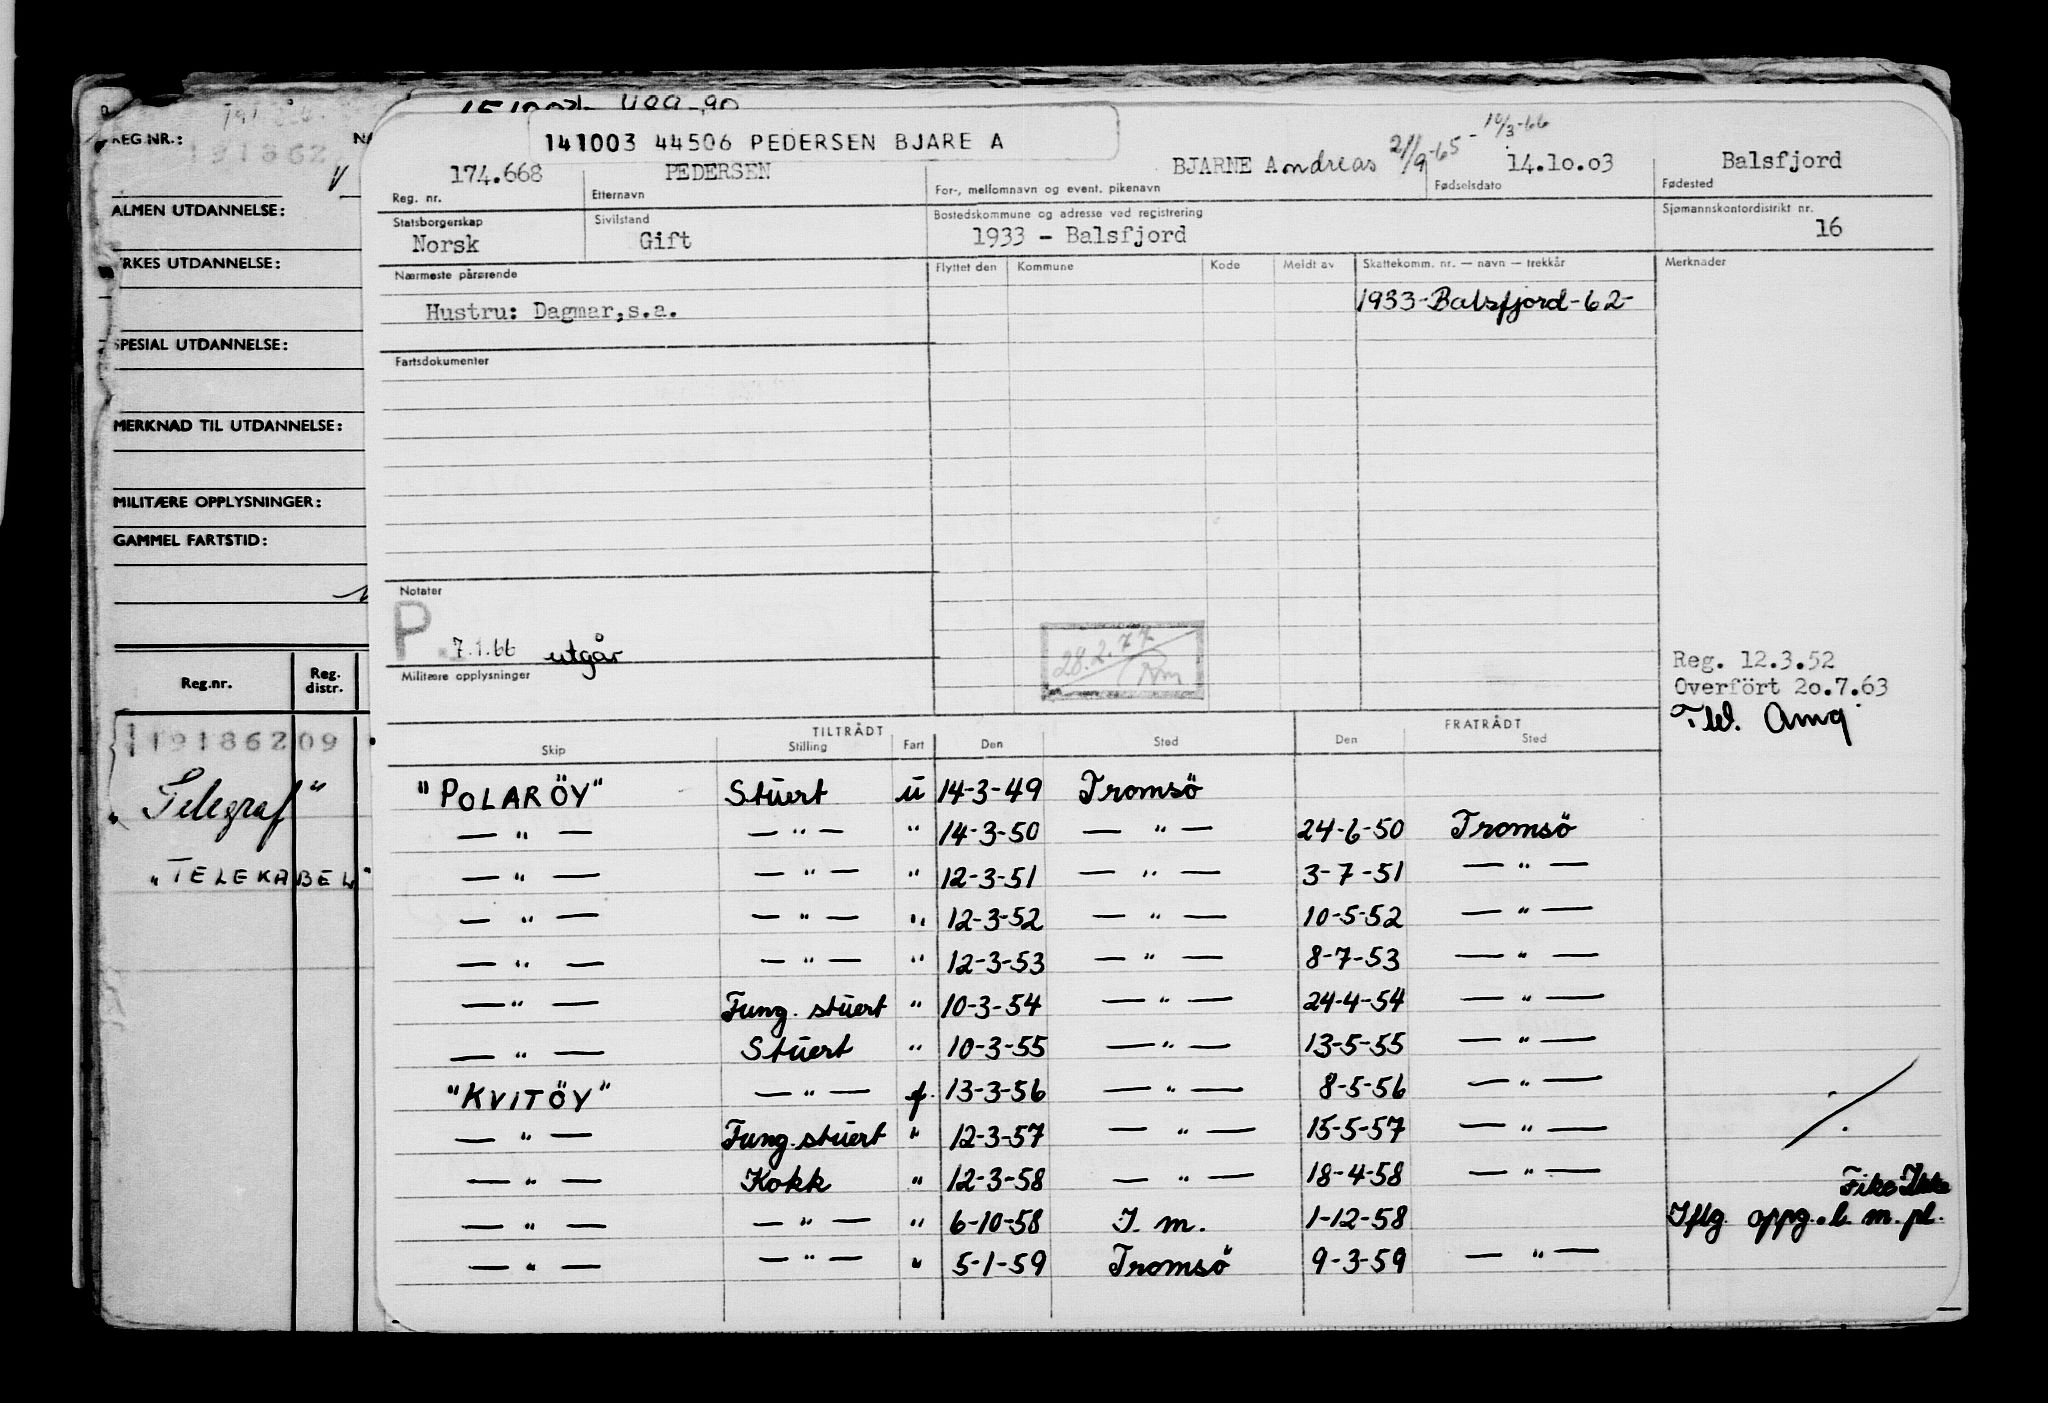 REG NR.:
191862
ALMEN UTDANNELSE:
YRKES UTDANNELSE:
SPESIAL UTDANNELSE:
MERKNAD TIL UTDANNELSE:
MILITÆRE OPPLYSNINGER:
GAMMEL FARTSTID:
Reg.nr. Reg. distr.
191862 09
"Telegraf"
"TELEKABEL"
141003 44506 PEDERSEN BJARE A
174.668 PEDERSEN BJARNE Andreas 21/9-65 - 10/3-66 14.10.03 Balsfjord
Reg. nr. Etternavn For-, mellomnavn og event. pikenavn Fødselsdato Fødested
Statsborgerskap Sivilstand Bostedskommune og adresse ved registrering Sjømannskontordistrikt nr.
Norsk Gift 1933 - Balsfjord 16
Nærmeste pårørende Flyttet den Kommune Kode Meldt av Skattekomm. nr. — navn — trekkår Merknader
Hustru: Dagmar,s.a. 1933-Balsfjord-62-
Fartsdokumenter
Notater
P. 7.1.66 utgår
28.2.77
Militære opplysninger
Reg. 12.3.52
Overfört 20.7.63
TILTRÅDT FRATRÅDT
Skip Stilling Fart Den Sted Den Sted
"POLARÖY" Stuert u 14-3-49 Tromsö
— " — — " — " 14-3-50 — " — 24-6-50 Tromsö
— " — — " — " 12-3-51 — " — 3-7-51 — " —
— " — — " — " 12-3-52 — " — 10-5-52 — " —
— " — — " — " 12-3-53 — " — 8-7-53 — " —
— " — Fung. stuert " 10-3-54 — " — 24-4-54 — " —
— " — Stuert " 10-3-55 — " — 13-5-55 — " —
"KVITÖY" — " — f. 13-3-56 — " — 8-5-56 — " —
— " — Fung. stuert " 12-3-57 — " — 15-5-57 — " —
— " — Kokk " 12-3-58 — " — 18-4-58 — " —
— " — — " — " 6-10-58 I. m. 1-12-58 Iflg. oppg. b. m. pl.
— " — — " — " 5-1-59 Tromsö 9-3-59 — " —